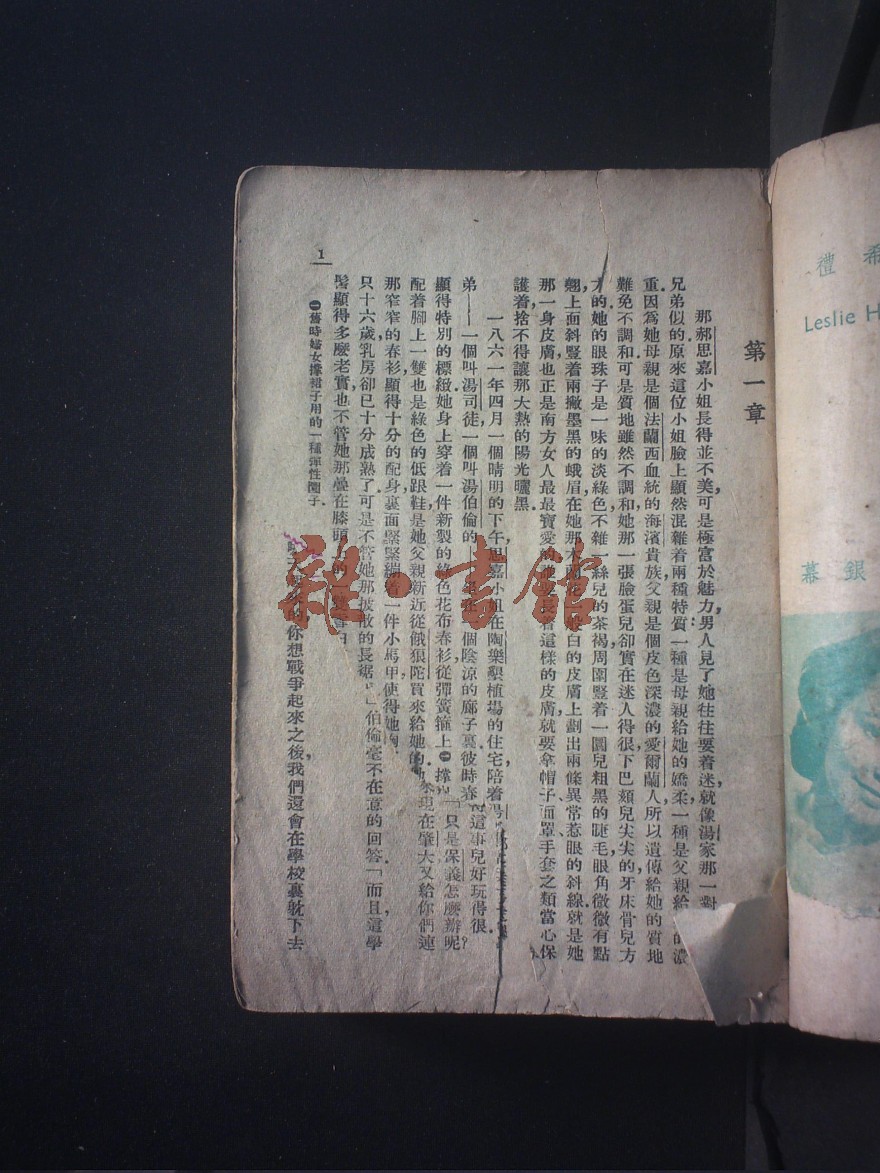 第一章
那郝思嘉小姐長得並不美，可是極富於魅力，男人見了她，往往要着迷，就像湯家那一對
兄弟似的。原來這位小姐臉上顯然混雜着兩種特質：一種是母親給她的嬌柔，一種是父親給的濃
重。因爲她母親是個法蘭西血統的海濱貴族，父親是個皮色深濃的愛爾蘭人，所以遺傳給她的質地
難免不調和。可是質地雖然不調和，她那一張臉蛋兒卻實在迷人得很，下巴頦兒尖尖的，牙床骨兒方
才的。她的眼珠子是一味的淡綠色，不雜一絲兒的茶褐，周圍豎着一圈兒粗黑的睫毛，眼角微微有點
翹，上面斜豎着兩撇墨黑的蛾眉，在她那木蘭花一般白的皮膚上劃出兩條異常惹眼的斜線。就是她
那一身皮膚，也正是南方女人最最寶愛的，長着這樣的皮膚，就要拿帽子、面罩、手套之類當心保
護着，捨不得讓那大熱的陽光曬黑。
一八六一年四月一個晴明的下午，思嘉小姐在陶樂墾植場的住宅，陪着湯
弟——一個叫湯司徒，一個叫湯伯倫的，一個陰涼的廊子裏。彼時春
這事兒好玩得很。
顯得特別的標緻。她身上穿着一件新製的綠色花布春衫，從彈簧箍上㊀撐
「只是保義怎麽辦呢？
配着腳上一雙也是綠色的低跟鞋，是她父親新近從餓狼陀買來給她的。
現在肇大又給你們連
那窄窄的春衫顯得十分的配身。裏面緊緊綳着一件小馬甲，使得她胸
只十六歲，乳房卻已十分成熟了。可是不管她那披散的長裾
」伯倫毫不在意的回答。「而且這學
髻顯得多麽老實，也不管她那疊在膝頭上的一雙
的。你想戰爭起來之後，我們還會在學校裏躭下去
㊀舊時婦女撐裙子用的一種彈性圈子。
1
禮 希
Leslie H
幕 銀
雜·書館